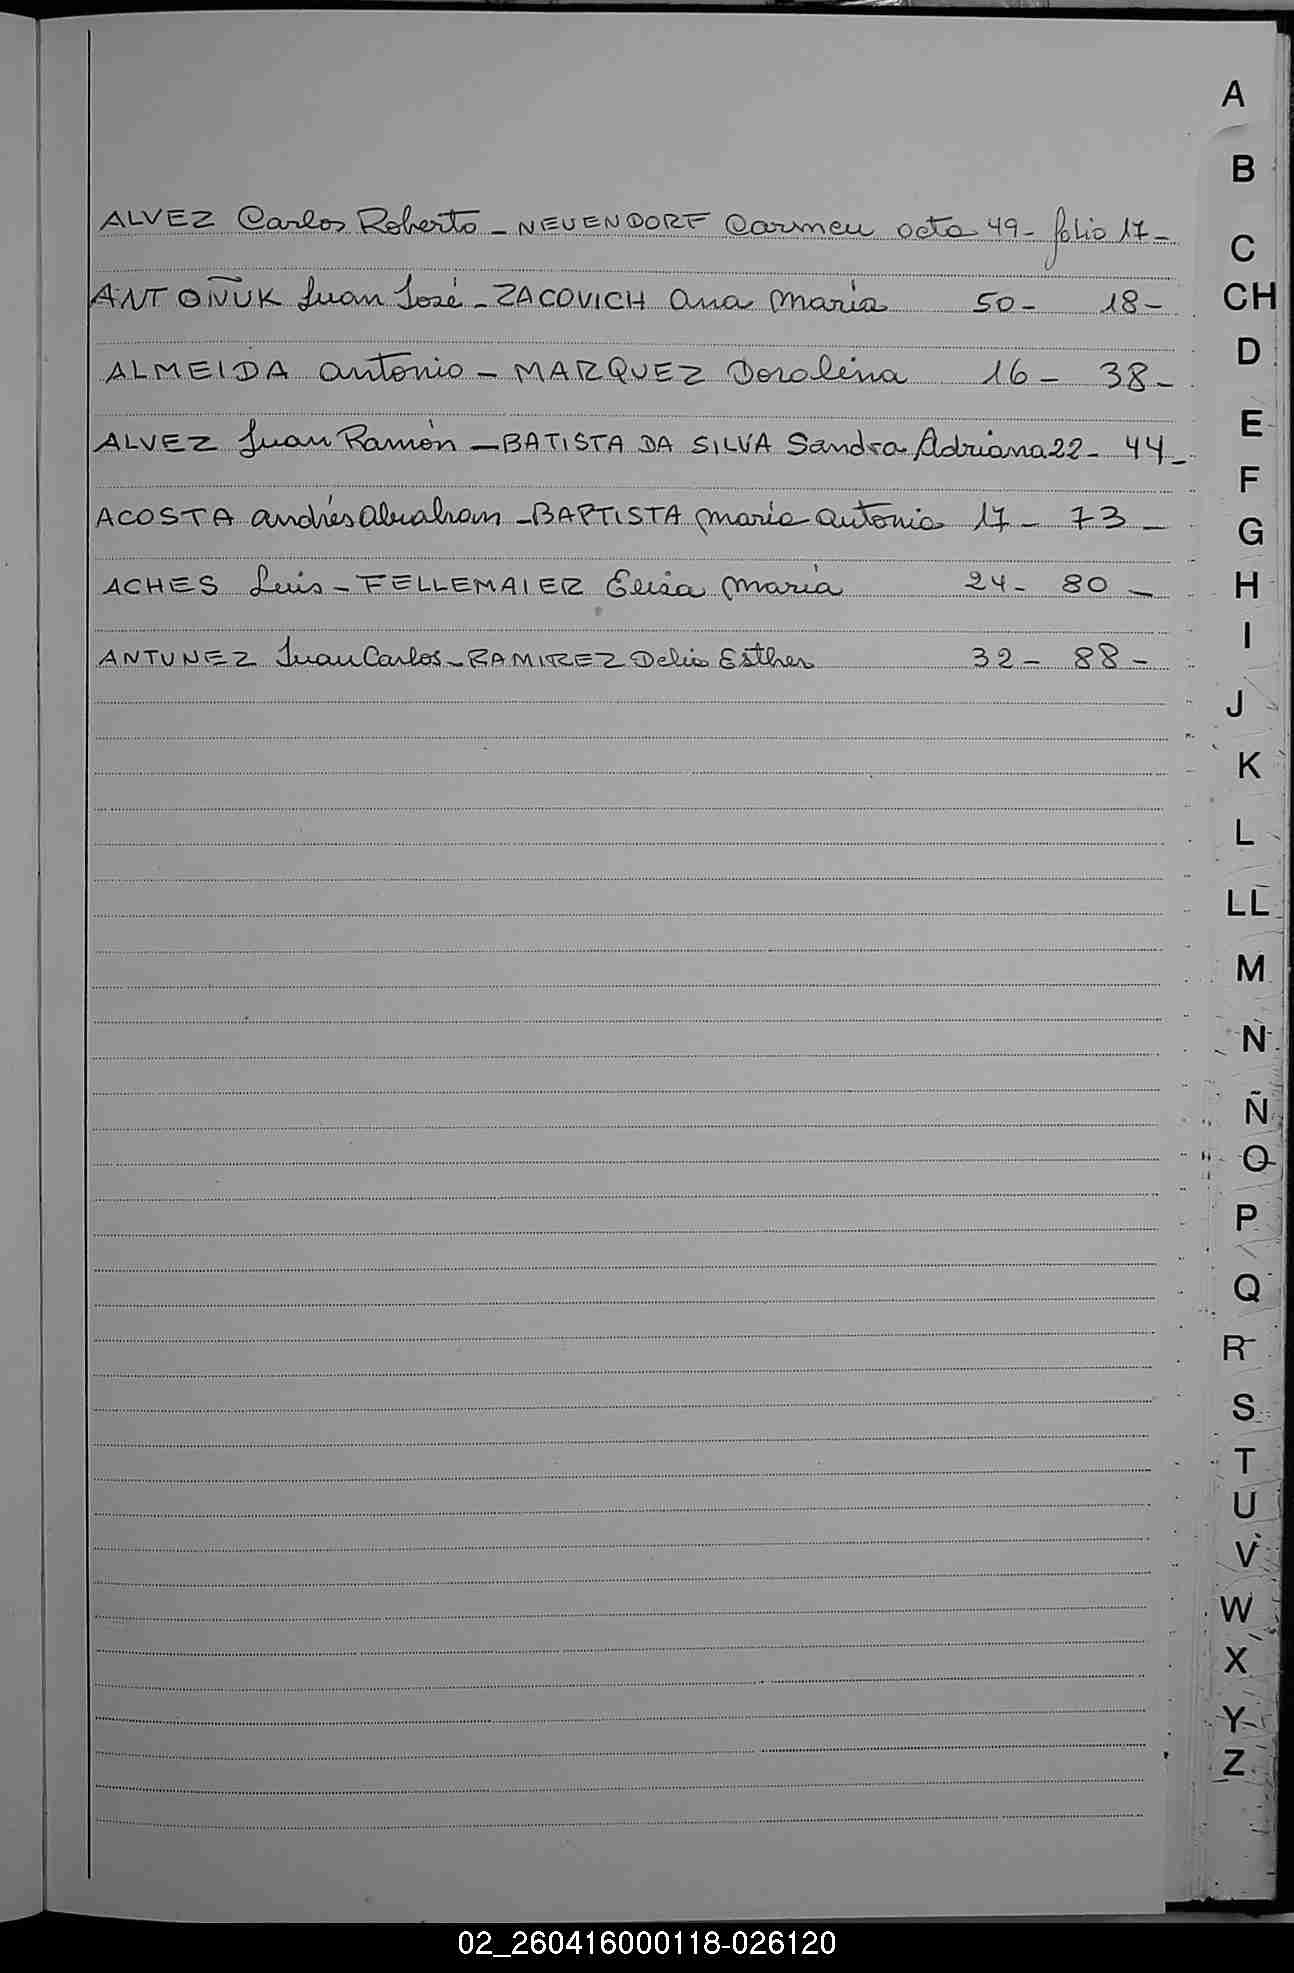 ALVEZ Carlos Roberto - NEUENDORF Carmen acta 49 - folio 17 -
ANTOÑUK Juan José - ZACOVICH Ana Maria 50 - 18 -
ALMEIDA Antonio - MARQUEZ Doralina 16 - 38 -
ALVEZ Juan Ramón - BATISTA DA SILVA Sandra Adriana 22 - 44 -
ACOSTA Andrés Abraham - BAPTISTA Maria Antonia 17 - 73 -
ACHES Luis - FELLEMAIER Elisa Maria 24 - 80 -
ANTUNEZ Juan Carlos - RAMIREZ Delia Esther 32 - 88 -
A
B
C
CH
D
E
F
G
H
I
J
K
L
LL
M
N
Ñ
O
P
Q
R
S
T
U
V
W
X
Y
Z
02_260416000118-026120